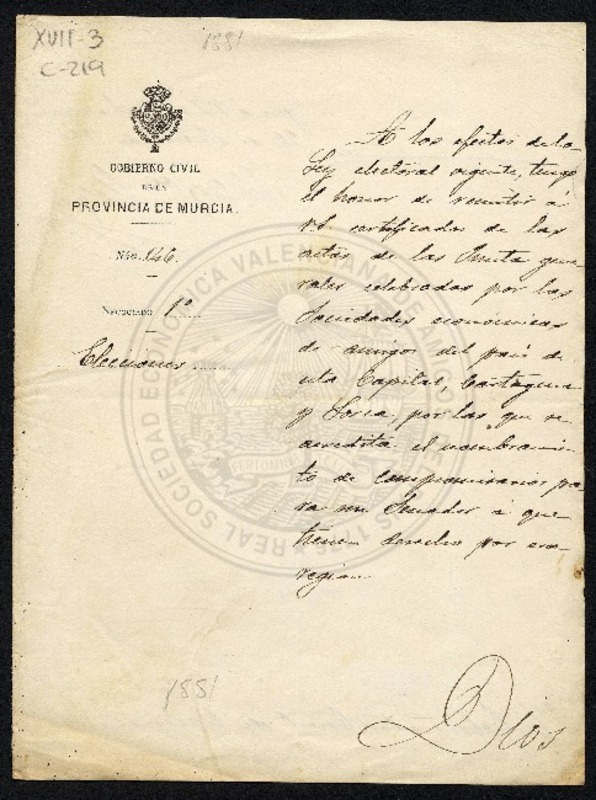 XVII-3
C-219
1881
GOBIERNO CIVIL
DE LA
PROVINCIA DE MURCIA.
Núm.
Negociado 1º
Elecciones
A los efectos de la
Ley electoral vigente, tengo
el honor de remitir á
V.S. certificados de las
actas de las Juntas gene-
rales celebradas por las
Sociedades económicas
de amigos del país de
esta Capital, Cartagena
y Lorca, por las que se
acredita el nombramien-
to de Compromisarios pa-
ra un Senador á que
tienen derecho por esa
region.
1881
Dios
REAL SOCIEDAD ECONÓMICA VALENCIANA DE AMIGOS DEL PAÍS 1776